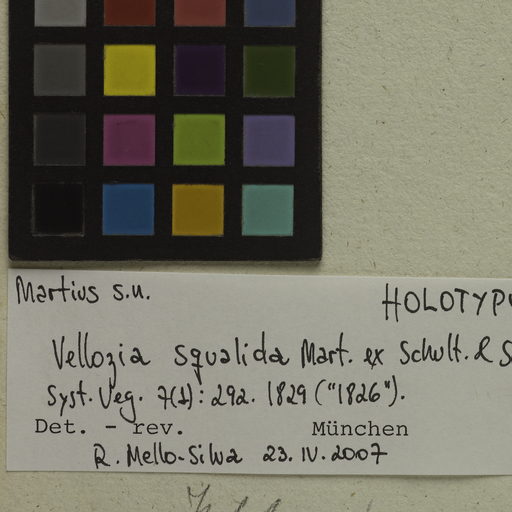 Martius s.n. HOLOTYPU
Vellozia squalida Mart. ex Schult. & S
Syst. Veg. 7(1): 292. 1829 ("1826").
Det. - rev. München
R. Mello-Silva 23. IV. 2007